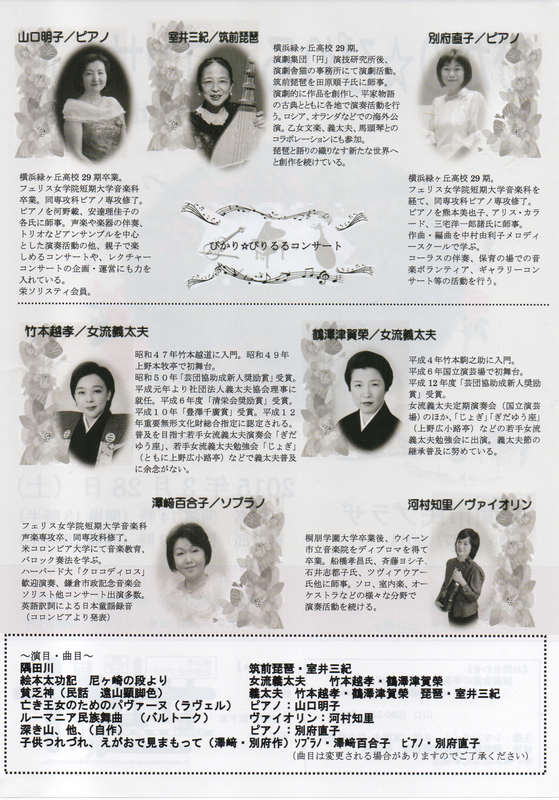 山口明子／ピアノ
横浜緑ヶ丘高校29期卒業。
フェリス女学院短期大学音楽科
卒業。同専攻科ピアノ専攻修了。
ピアノを河野載、安達理佳子の
各氏に師事。声楽や楽器の伴奏、
トリオなどアンサンブルを中心
とした演奏活動の他、親子で楽
しめるコンサートや、レクチャー
コンサートの企画・運営にも力を
入れている。
栄ソリスティ会員。
室井三紀／筑前琵琶
横浜緑ヶ丘高校29期。
演劇集団「円」演技研究所後、
演劇舎猫の事務所にて演劇活動。
筑前琵琶を田原順子氏に師事。
演劇的に作品を創作し、平家物語
の古典とともに各地で演奏活動を行
う。ロシア、オランダなどでの海外公
演。乙女文楽、義太夫、馬頭琴との
コラボレーションにも参加。
琵琶と語りの織りなす新たな世界へ
と創作を続けている。
別府直子／ピアノ
横浜緑ヶ丘高校29期。
フェリス女学院短期大学音楽科を
経て、同専攻科ピアノ専攻修了。
ピアノを熊本美也子、アリス・カラ
ード、三宅洋一郎諸氏に師事。
作曲・編曲を中村由利子メロディ
ースクールで学ぶ。
コーラスの伴奏、保育の場での音
楽ボランティア、ギャラリーコン
サート等の活動を行う。
ぴかり☆ぴりるるコンサート
竹本越孝／女流義太夫
昭和47年竹本越道に入門。昭和49年
上野本牧亭で初舞台。
昭和50年「芸団協助成新人奨励賞」受賞。
平成元年より社団法人義太夫協会理事に
就任。平成6年度「清栄会奨励賞」受賞。
平成10年「豊澤千廣賞」受賞。平成12
年重要無形文化財総合指定に認定される。
普及を目指す若手女流義太夫演奏会「ぎだ
ゆう座」、若手女流義太夫勉強会「じょぎ」
（ともに上野広小路亭）などで義太夫普及
に余念がない。
鶴澤津賀榮／女流義太夫
平成4年竹本駒之助に入門。
平成6年国立演芸場で初舞台。
平成12年度「芸団協助成新人奨励
賞」受賞。
女流義太夫定期演奏会（国立演芸
場）のほか、「じょぎ」「ぎだゆう座」
（上野広小路亭）などの若手女流義
太夫勉強会に出演。義太夫節の
継承普及に努めている。
澤﨑百合子／ソプラノ
フェリス女学院短期大学音楽科
声楽専攻卒、同専攻科修了。
米コロンビア大学にて音楽教育、
バロック奏法を学ぶ。
ハーバード大「クロコディロス」
歓迎演奏、鎌倉市政記念音楽会
ソリスト他コンサート出演多数。
英語訳詞による日本童謡録音
（コロンビアより発表）
河村知里／ヴァイオリン
桐朋学園大学卒業後、ウイーン
市立音楽院をディプロマを得て
卒業。船橋孝昌氏、斉藤ヨシ子、
石井志都子氏、ツヴィアウアー
氏他に師事。ソロ、室内楽、オー
ケストラなどの様々な分野で
演奏活動を続ける。
～演目・曲目～
隅田川　筑前琵琶・室井三紀
絵本太功記　尼ヶ崎の段より　女流義太夫　竹本越孝・鶴澤津賀榮
貧乏神（民話　遠山顕脚色）　義太夫　竹本越孝・鶴澤津賀榮　琵琶・室井三紀
亡き王女のためのパヴァーヌ（ラヴェル）　ピアノ：山口明子
ルーマニア民族舞曲　（バルトーク）　ヴァイオリン：河村知里
深き山、他、（自作）　ピアノ：別府直子
子供つれづれ、えがおで見まもって（澤﨑・別府作）ソプラノ・澤﨑百合子　ピアノ・別府直子
（曲目は変更される場合がありますのでご了承ください）